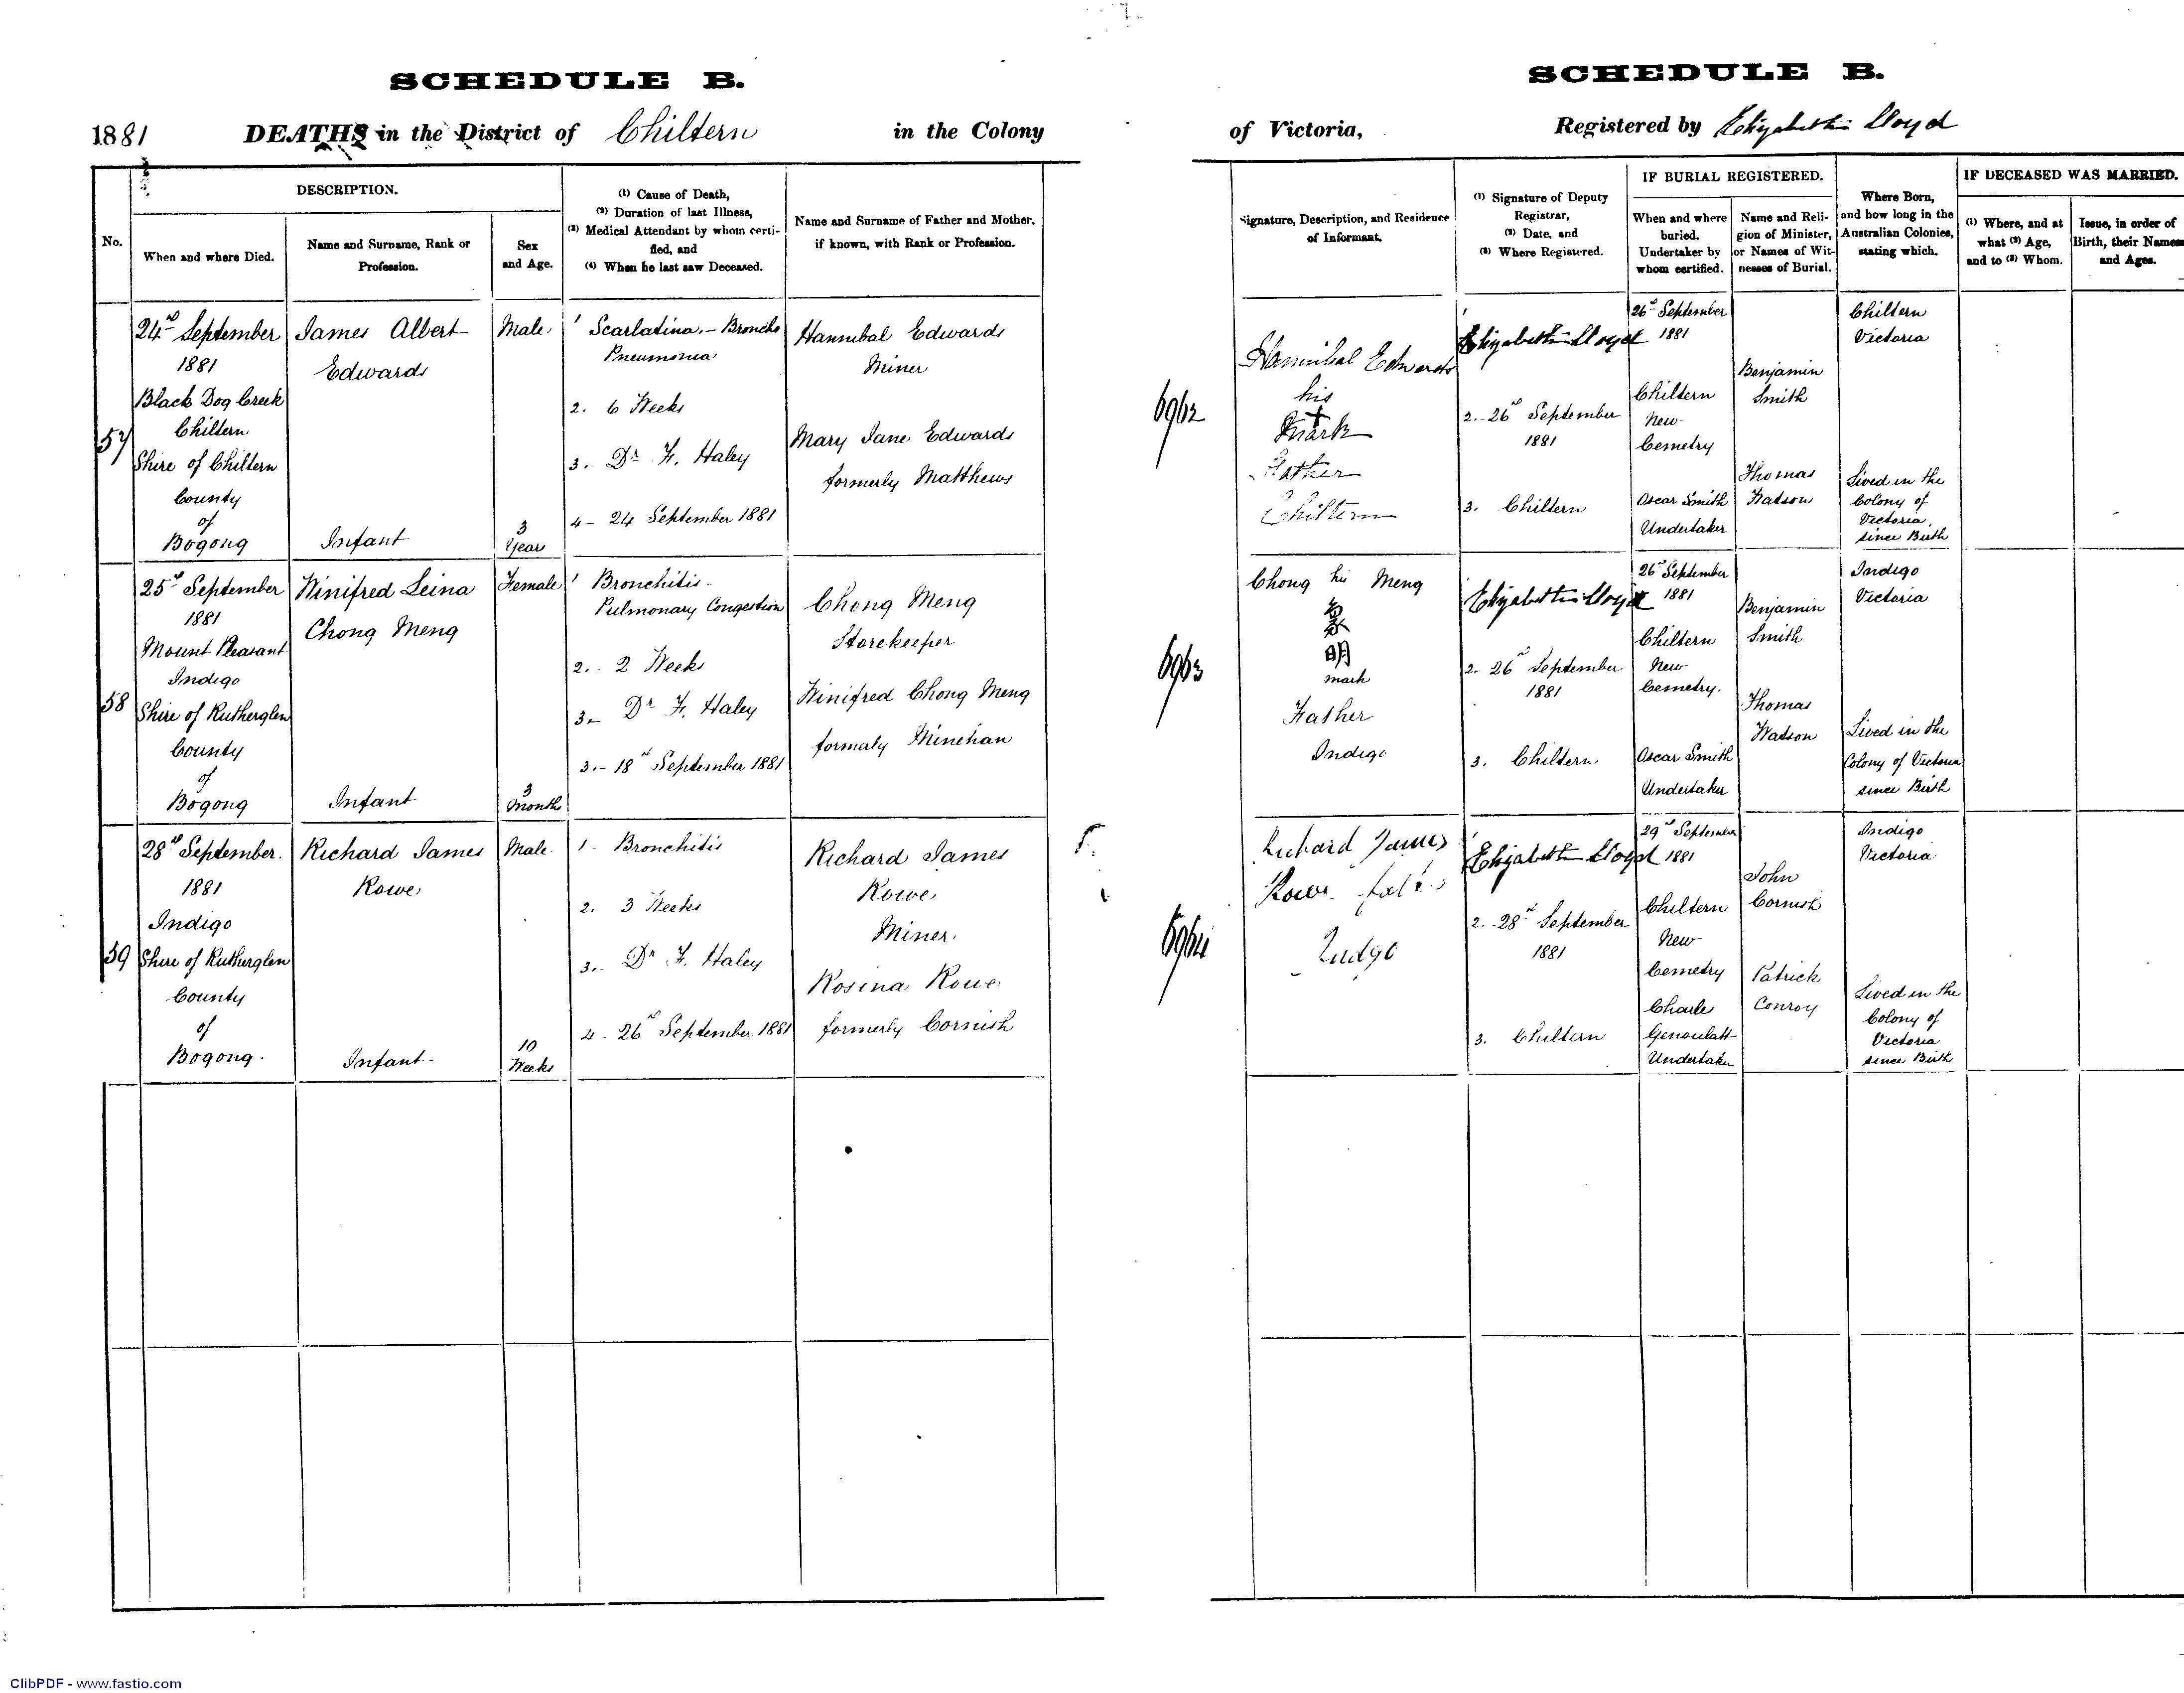 SCHEDULE B.
1881 DEATHS in the District of Chiltern in the Colony
No.
DESCRIPTION.
When and where Died.
Name and Surname, Rank or
Profession.
Sex
and Age.
(1) Cause of Death,
(2) Duration of last Illness,
(3) Medical Attendant by whom certi-
fied, and
(4) When he last saw Deceased.
Name and Surname of Father and Mother,
if known, with Rank or Profession.
57
24th September
1881
Black Dog Creek
Chiltern
Shire of Chiltern
County
of
Bogong
James Albert
Edwards
Infant
Male
3
Year
1 Scarlatina - Broncho
Pneumonia
2. 6 Weeks
3. Dr F. Haley
4 - 24 September 1881
Hannibal Edwards
Miner
Mary Jane Edwards
formerly Matthews
58
25th September
1881
Mount Pleasant
Indigo
Shire of Rutherglen
County
of
Bogong
Winifred Leina
Chong Meng
Infant
Female
3
Month
1 Bronchitis
Pulmonary Congestion
2. - 2 Weeks
3 - Dr F. Haley
3. - 18th September 1881
Chong Meng
Storekeeper
Winifred Chong Meng
formerly Minehan
59
28th September.
1881
Indigo
Shire of Rutherglen
County
of
Bogong.
Richard James
Rowe
Infant
Male
10
Weeks
1 - Bronchitis
2. 3 Weeks
3. - Dr F. Haley
4 - 26th September 1881
Richard James
Rowe
Miner.
Rosina Rowe
formerly Cornish
SCHEDULE B.
of Victoria, Registered by Elizabeth Lloyd
Signature, Description, and Residence
of Informant.
(1) Signature of Deputy
Registrar,
(2) Date, and
(3) Where Registered.
IF BURIAL REGISTERED.
When and where
buried.
Undertaker by
whom certified.
Name and Reli-
gion of Minister,
or Names of Wit-
nesses of Burial.
Where Born,
and how long in the
Australian Colonies,
stating which.
IF DECEASED WAS MARRIED.
(1) Where, and at
what (2) Age,
and to (3) Whom.
Issue, in order of
Birth, their Names
and Ages.
6962
Hannibal Edwards
his
+
Mark
Father
Chiltern
1
Elizabeth Lloyd
2. - 26th September
1881
3. Chiltern
26th September
1881
Chiltern
New
Cemetry
Oscar Smith
Undertaker
Benjamin
Smith
Thomas
Watson
Chiltern
Victoria
Lived in the
Colony of
Victoria
since Birth
6963
Chong his Meng
明
mark
Father
Indigo
Elizabeth Lloyd
2 - 26th September
1881
3. Chiltern
26th September
1881
Chiltern
New
Cemetry.
Oscar Smith
Undertaker
Benjamin
Smith
Thomas
Watson
Indigo
Victoria
Lived in the
Colony of Victoria
since Birth
6964
Richard James
Rowe father
Indigo
Elizabeth Lloyd
2. - 28th September
1881
3. Chiltern
29th September
1881
Chiltern
New
Cemetry
Charles
Undertaker
John
Cornish
Patrick
Conroy
Indigo
Victoria
Lived in the
Colony of
Victoria
since Birth
ClibPDF - www.fastio.com